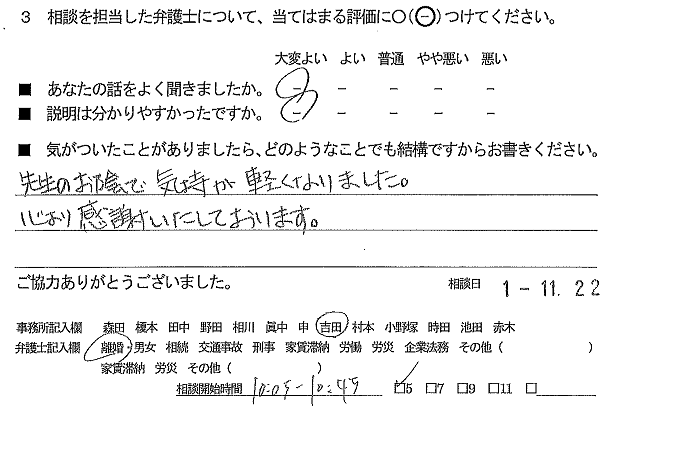 3 相談を担当した弁護士について、当てはまる評価に○(-)つけてください。
大変よい よい 普通 やや悪い 悪い
■ あなたの話をよく聞きましたか。 - - - - -
■ 説明は分かりやすかったですか。 - - - - -
■ 気がついたことがありましたら、どのようなことでも結構ですからお書きください。
先生のお陰で気持が軽くなりました。
心より感謝いたしております。
ご協力ありがとうございました。 相談日 1-11.22
事務所記入欄 森田 榎本 田中 野田 相川 眞中 申 吉田 村本 小野塚 時田 池田 赤木
弁護士記入欄 離婚・男女 相続 交通事故 刑事 家賃滞納 労働 労災 企業法務 その他( )
家賃滞納 労災 その他( )
相談開始時間 10:05-10:45 □5 □7 □9 □11 □